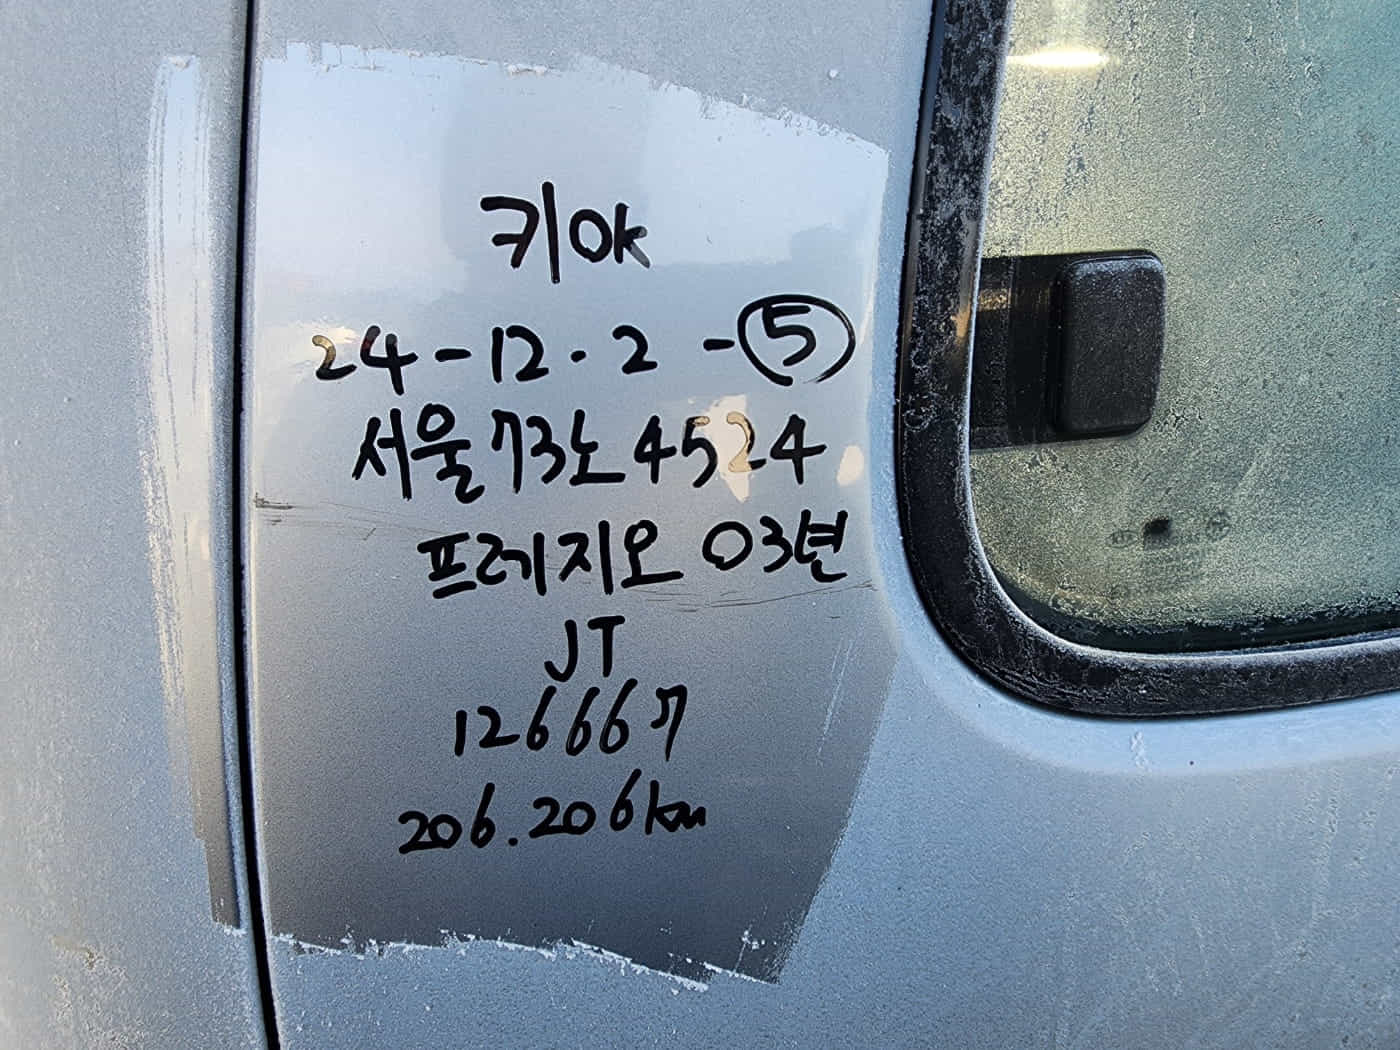 키ok
24-12.2 -⑤
서울73노4524
프레지오 03년
JT
126667
206.206km